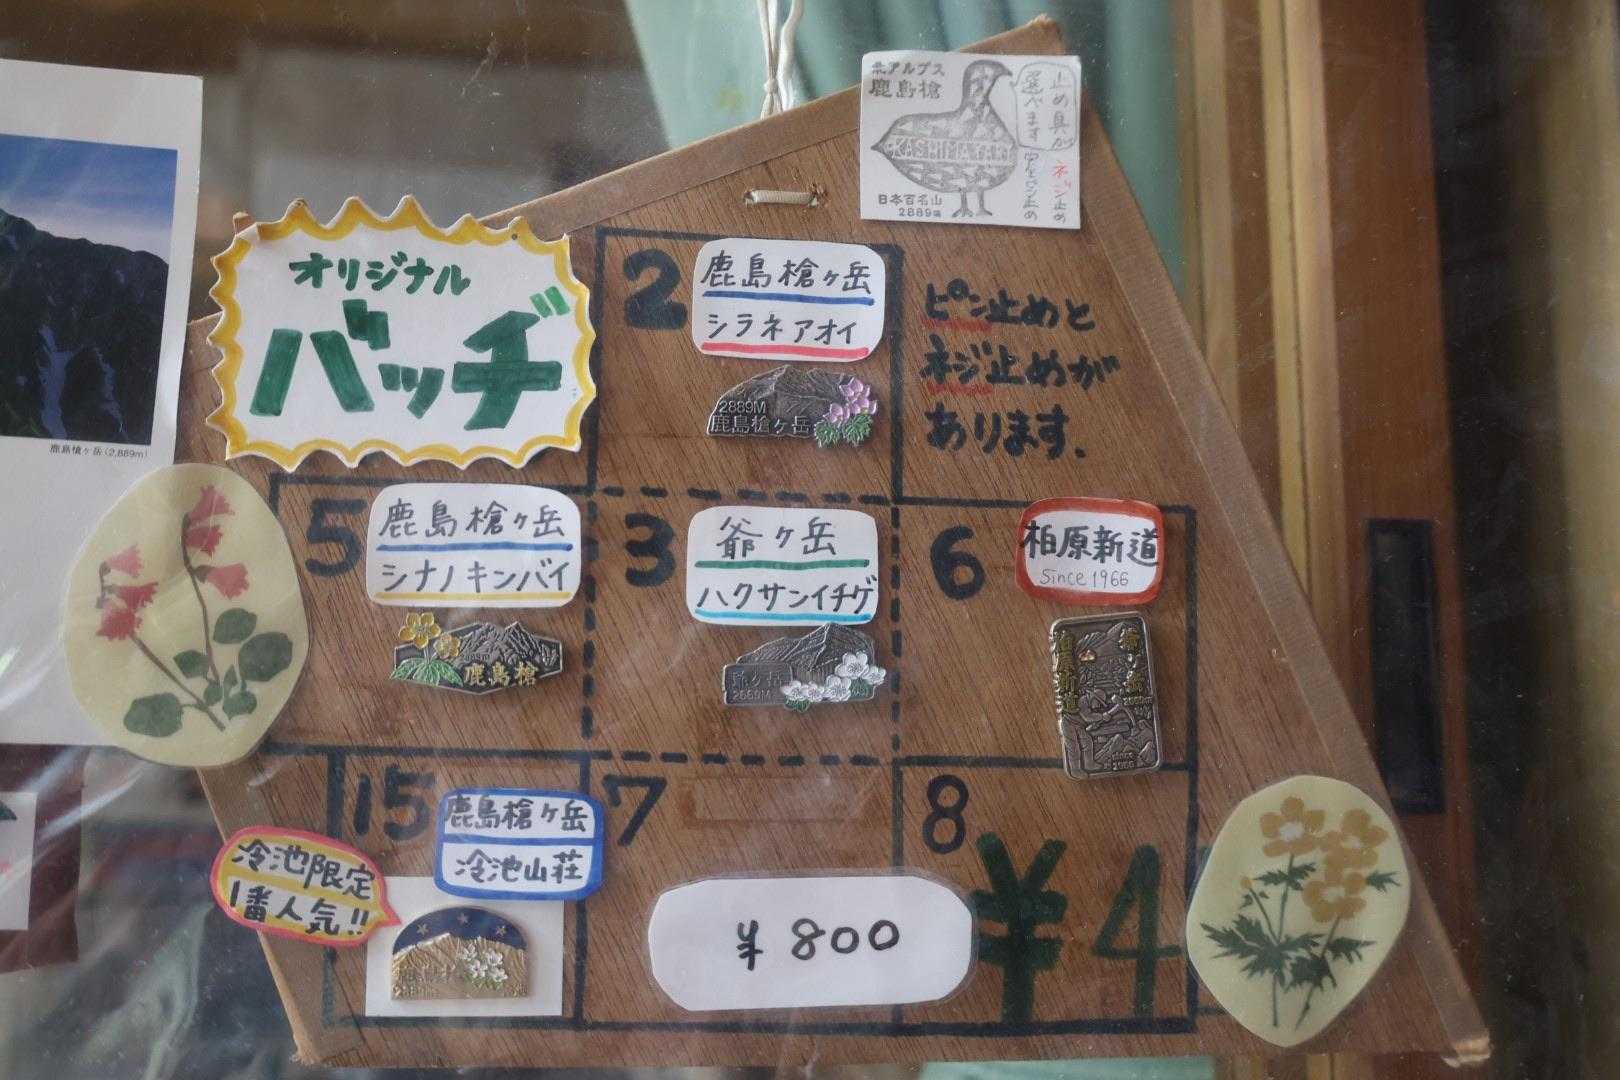 北アルプス
鹿島槍
KASHIMAYARI
日本百名山
2889m
止め具が
選べます
ネジ止め
ピン止め
オリジナル
バッヂ
2
鹿島槍ヶ岳
シラネアオイ
2889M
鹿島槍ヶ岳
ピン止めと
ネジ止めが
あります.
鹿島槍ヶ岳(2,889m)
5
鹿島槍ヶ岳
シナノキンバイ
鹿島槍
3
爺ヶ岳
ハクサンイチゲ
爺ヶ岳
2669M
6
柏原新道
Since 1966
爺ヶ岳
柏原新道
since
1966
15
鹿島槍ヶ岳
冷池山荘
冷池限定
1番人気!!
7
¥800
8
¥4